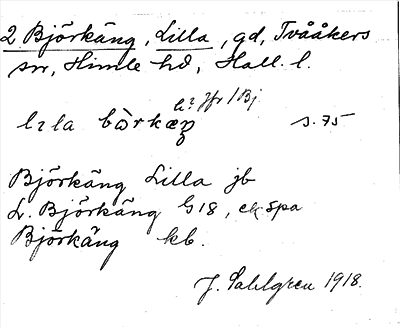 2 Björkäng, Lilla, gd, Tvååkers
sn, Himle hd, Hall. l.
Bj
s. 75
Björkäng Lilla jb
L. Björkäng G18, ekspa
Björkäng kb.
J. Sahlgren 1918.